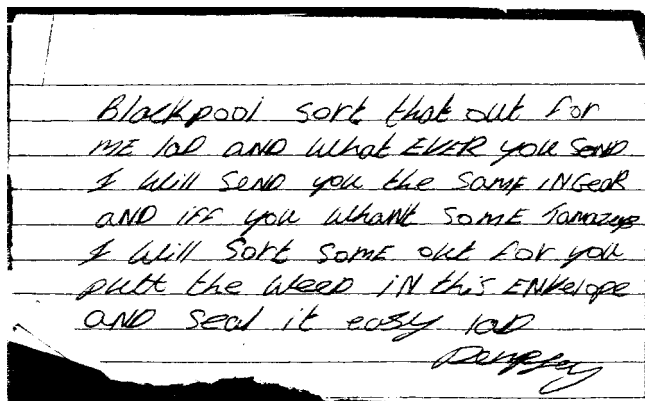 Blackpool sort that out for
ME laD AND What EVER you SEND
I Will SEND you the SamE iN GeaR
AND iff you WhaNt SomE Tamazeys
I Will Sort SomE out for you
putt the WeeD iN this ENvelope
AND Seal it easy laD
Dempsey